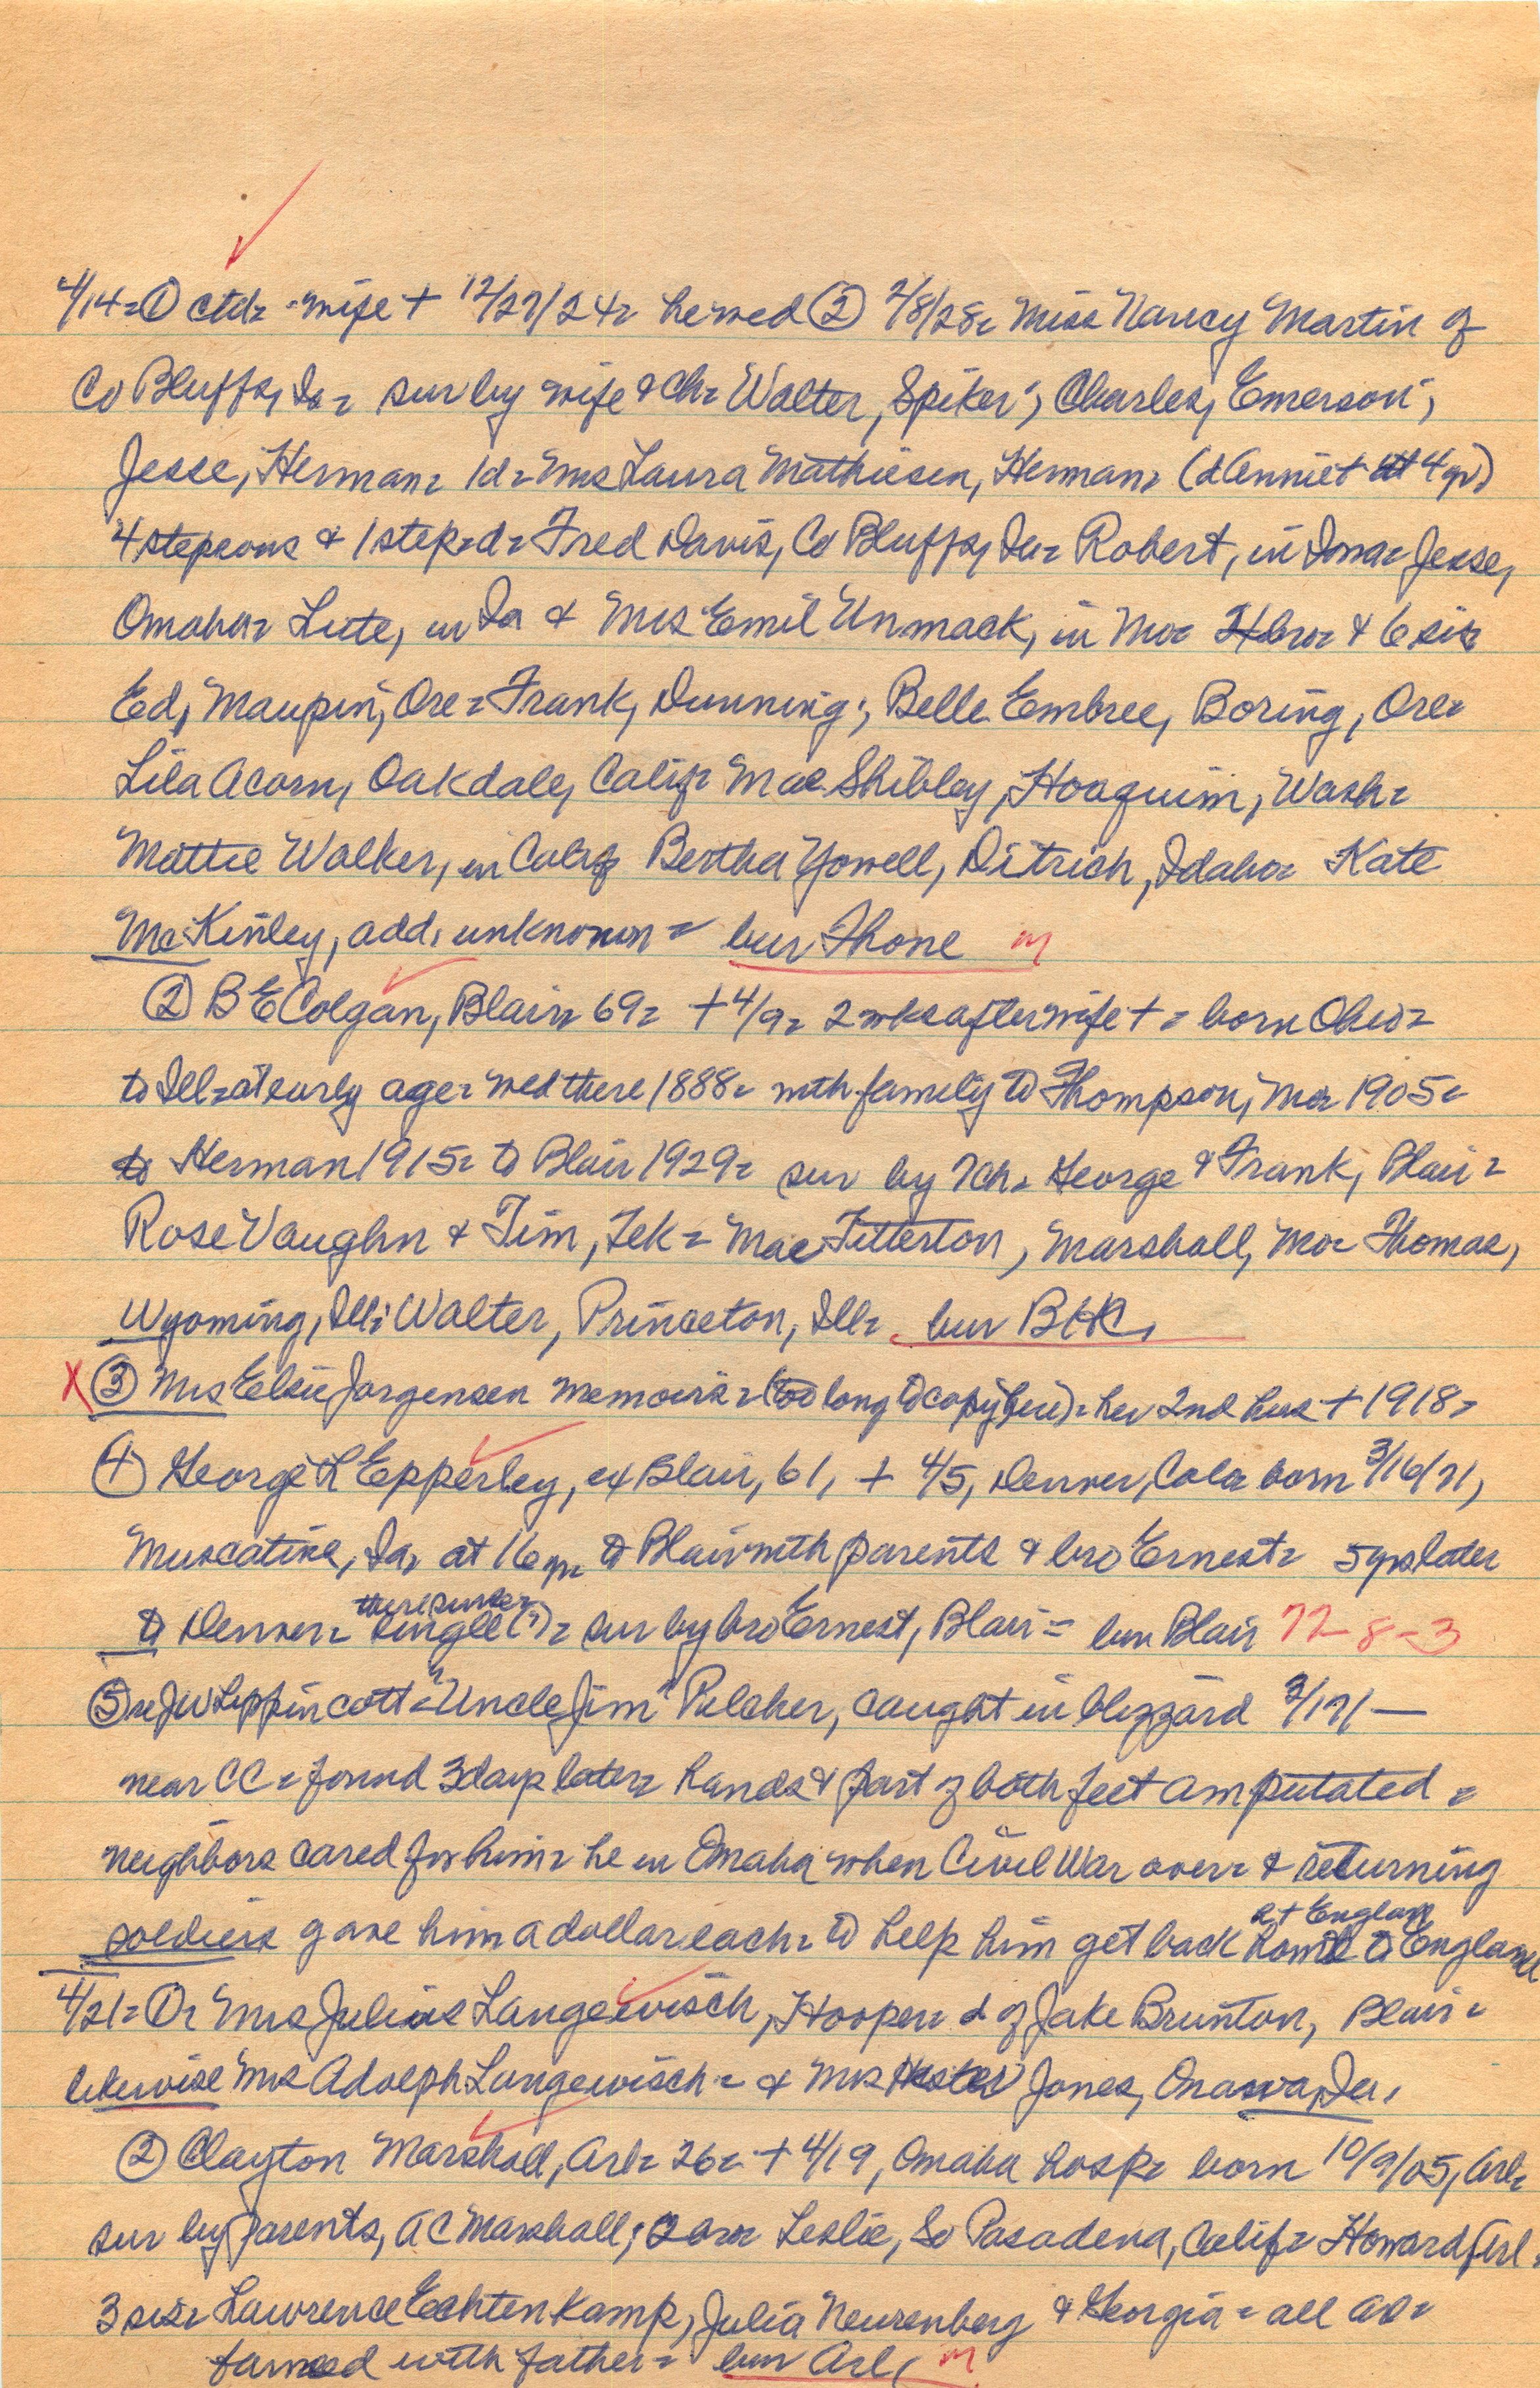 4/14= ① ctd= wife + 12/27/24= he wed ② 2/8/28= Miss Nancy Martin of
Co Bluffs, Ia= sur by wife & ch= Walter, Spiker; Charles, Emerson;
Jesse, Herman= 1d= Mrs Laura Mathiesen, Herman= (d Annie + at 4 yr)
4 stepsons & 1 step=d= Fred Davis, Co Bluffs, Ia= Robert, in Iowa= Jesse,
Omaha= Lute, in Ia & Mrs Emil Unmack, in Mo= 2 bro= & 6 sis=
Ed, Maupin, Ore= Frank, Dunning; Belle Embree, Boring, Ore=
Lila Acorn, Oakdale, Calif= Mae Shibley, Hoaquim, Wash=
Mattie Walker, in Calif Bertha Yowell, Ditrich, Idaho= Kate
McKinley, add. unknown= bur Fhone m
② B E Colgan, Blair= 69= + 4/9= 2 wks after wife + = born Ohio=
to Ill= at early age= wed there 1888= with family to Thompson, Mo= 1905=
to Herman 1915= to Blair 1929= sur by 7 ch= George & Frank, Blair=
Rose Vaughn & Tim, Tek= Mae Titterton, Marshall, Mo= Thomas,
Wyoming, Ill; Walter, Princeton, Ill= bur
X ③ Mrs Elsie Jorgensen memoirs= (too long to copy here)= her 2nd hus + 1918=
④ George L Epperley, ex Blair, 61, + 4/5, Denver, Colo= born 3/16/71,
Muscatine, Ia, at 16 yr= to Blair with parents & bro Ernest= 5 yrs later
there since
to Denver= single (?)= sur by bro Ernest, Blair= bur Blair 72-8-3
⑤ re J W Lippincott= "Uncle Jim" Pilcher, caught in blizzard 3/17/—
near CC= found 3 days later= hands & part of both feet amputated=
neighbors cared for him= he in Omaha when Civil War over= & returning
at Englan
soldiers gave him a dollar each= to help him get back home to England
4/21= ①= Mrs Julius Langewisch, Hooper= d of Jake Brunton, Blair=
likewise Mrs Adolph Langewisch= & Mrs Hester Jones, Onawa, Ia,
② Clayton Marshall, Arl= 26= + 4/19, Omaha hosp= born 10/9/05, Arl=
sur by parents, A C Marshall; 2 bro= Leslie, So Pasadena, Calif= Howard, Arl=
3 sis= Lawrence Echtenkamp, Julia Neurenberg & Georgia= all Arl=
farmed with father= bur Arl, m